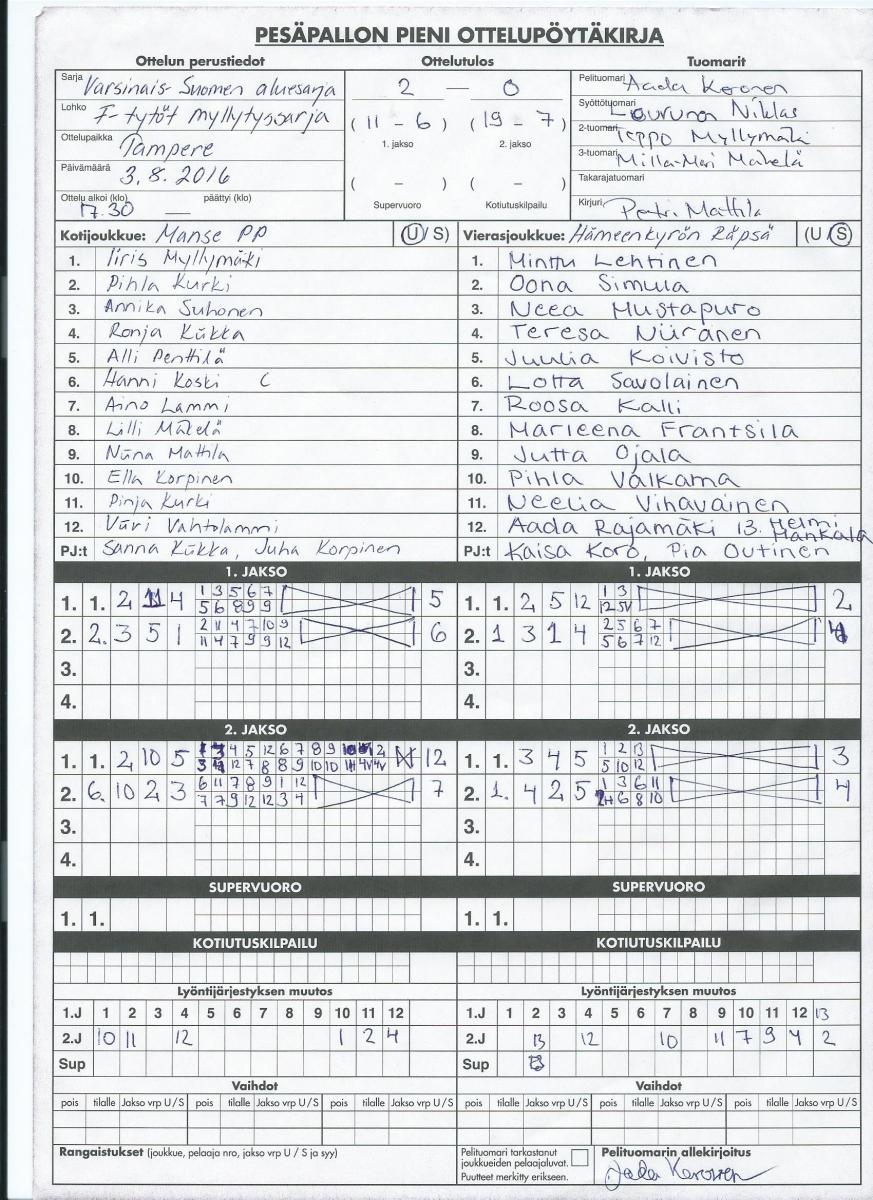 PESÄPALLON PIENI OTTELUPÖYTÄKIRJA
Ottelun perustiedot Ottelutulos Tuomarit
Sarja Varsinais-Suomen aluesarja
Lohko F-tytöt myllytyssarja
Ottelupaikka Tampere
Päivämäärä 3.8.2016
Ottelu alkoi (klo) 17.30 — päättyi (klo)
2 — 0
( 11 - 6 ) ( 19 - 7 )
1. jakso 2. jakso
( - ) ( - )
Supervuoro Kotiutuskilpailu
Pelituomari Aada Keronen
Syöttötuomari Niklas
2-tuomari Teppo Myllymäki
3-tuomari Milla-Mari Mäkelä
Takarajatuomari
Kirjuri Petri Mattila
Kotijoukkue: Manse PP (U/ S)
1. Iiris Myllymäki
2. Pihla Kurki
3. Annika Suhonen
4. Ronja Kukka
5. Alli Penttilä
6. Hanni Koski C
7. Aino Lammi
8. Lilli Mäkelä
9. Niina Mattila
10. Ella Korpinen
11. Pinja Kurki
12. Viivi Vahtolammi
PJ:t Sanna Kukka, Juha Korpinen
Vierasjoukkue: Hämeenkyrön Räpsä (U /S)
1. Minttu Lehtinen
2. Oona Simula
3. Neea Mustapuro
4. Teresa Niiranen
5. Juulia Koivisto
6. Lotta Savolainen
7. Roosa Kalli
8. Marleena Frantsila
9. Jutta Ojala
10. Pihla Valkama
11. Neelia Vihavainen
12. Aada Rajamäki 13. Helmi Mankala
PJ:t Kaisa Koro, Pia Outinen
1. JAKSO
1. 1. 2 4 1 3 5 6 7 5
5 6 8 9 9
2. 2. 3 5 1 2 11 4 7 10 9 6
11 4 7 9 9 12
3.
4.
1. JAKSO
1. 1. 2 5 12 1 3 2
12 5V
2. 1 3 1 4 2 5 6 7 4
5 6 7 12
3.
4.
2. JAKSO
1. 1. 2 10 5 4 5 12 6 7 8 9 2 12
3 12 7 8 8 9 10 10 11 4V 4V
2. 6. 10 2 3 6 11 7 8 9 1 12 7
7 7 9 12 12 3 4
3.
4.
2. JAKSO
1. 1. 3 4 5 1 2 13 3
5 10 12
2. 1. 4 2 5 1 3 6 11 4
6 8 10
3.
4.
SUPERVUORO SUPERVUORO
1. 1. 1. 1.
KOTIUTUSKILPAILU KOTIUTUSKILPAILU
Lyöntijärjestyksen muutos
1.J 1 2 3 4 5 6 7 8 9 10 11 12
2.J 10 11 12 1 2 4
Sup
Lyöntijärjestyksen muutos
1.J 1 2 3 4 5 6 7 8 9 10 11 12 13
2.J 13 12 10 11 7 9 4 2
Sup
Vaihdot Vaihdot
pois tilalle Jakso vrp U / S pois tilalle Jakso vrp U / S pois tilalle Jakso vrp U / S pois tilalle Jakso vrp U / S pois tilalle Jakso vrp U / S pois tilalle Jakso vrp U / S
Rangaistukset (joukkue, pelaaja nro, jakso vrp U / S ja syy)
Pelituomari tarkastanut
joukkueiden pelaajaluvat.
Puutteet merkitty erikseen.
Pelituomarin allekirjoitus
Aada Keronen